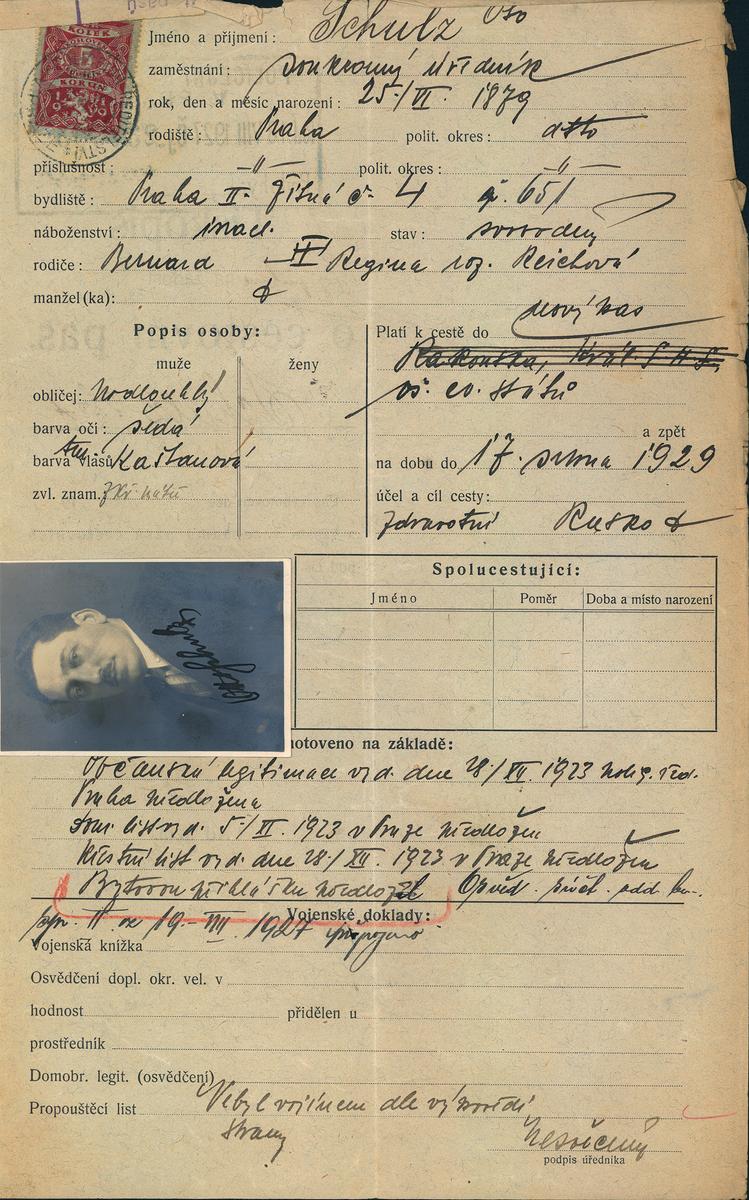 KOLEK
KORUN
Jméno a příjmení: Schulz Oto
zaměstnání: soukromý úředník
rok, den a měsíc narození: 25./VI. 1879
rodiště: Praha polit. okres: dtto
příslušnost: -"- polit. okres: -"-
bydliště: Praha II. Žitná č. 4 651
náboženství: israel. stav: svobodný
rodiče: Bernard Regina roz. Reichová
manžel(ka):
nový pas
Popis osoby: Platí k cestě do
muže ženy Rakouska, Král. S H S.
obličej: podlouhlý vš. ev. států
barva očí: šedá a zpět
barva vlasů tm. kaštanová na dobu do 17. srpna 1929
zvl. znam. účel a cíl cesty:
zdravotní Rusko
Spolucestující:
Jméno Poměr Doba a místo narození
hotoveno na základě:
Občanská legitimace vyd. dne 28/XII. 1923 polic. řed.
Praha předložena
dom. list vyd. 5/XI. 1923 v Praze předložen
Křestní list vyd. dne 28/XII. 1923 v Praze předložen
Bytovou přihlášku předložil
Vojenské doklady:
19.-VIII. 1927 připojeno
Vojenská knížka
Osvědčení dopl. okr. vel. v
hodnost přidělen u
prostředník
Domobr. legit. (osvědčení)
Propouštěcí list Nebyl vojínem dle výpovědi
strany
podpis úředníka